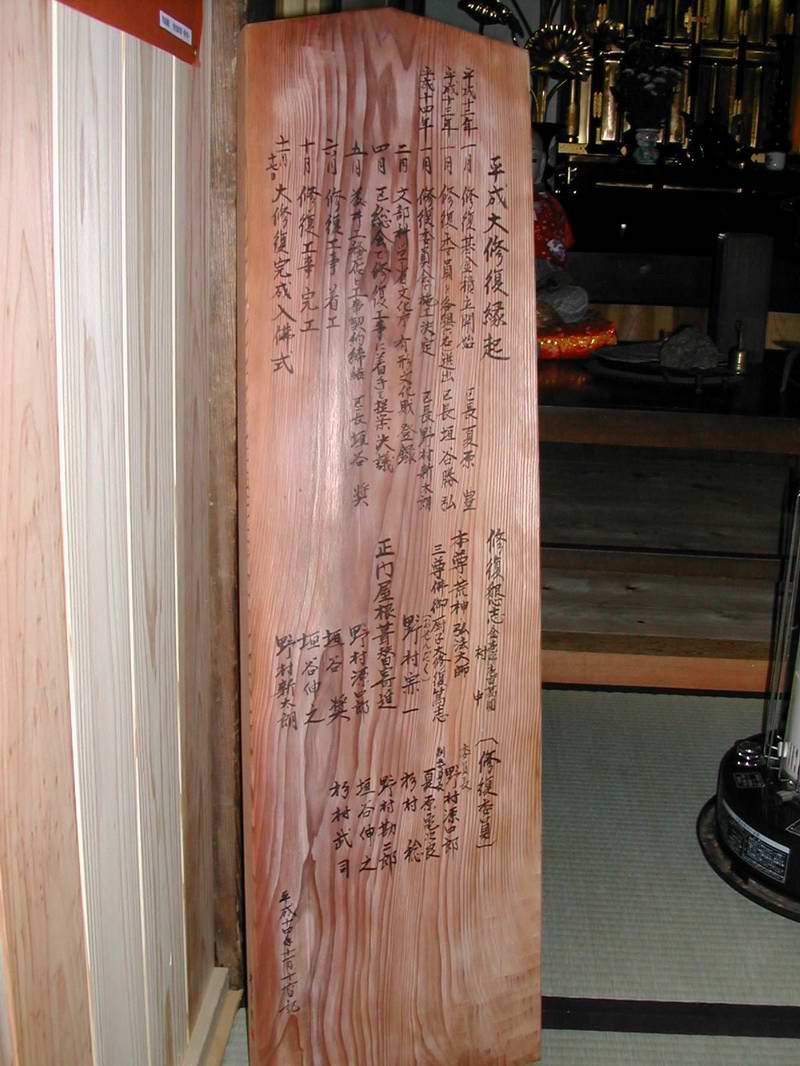 平成大修復縁起
平成十二年 一月 修復基金積立開始 区長 夏原 豊
平成十三年 一月 修復委員 各組 名選出 区長 垣谷勝弘
平成十四年 一月 修復委員会 決定 区長 野村新太朗
二月 文部科学省文化庁 有形文化財 登録
四月 区総会で修復工事に着手を提案 決議
五月 工務店と工事契約締結 区長 垣谷 奨
六月 修復工事 着工
十月 修復工事 完工
十一月 大修復完成入佛式
修復懇志
村中
本尊 荒神 弘法大師
三尊佛御厨子大修復篤志
野村宗一
正門屋根葺替寄進
野村源四郎
垣谷 奨
垣谷伸之
野村新太朗
〔修復委員〕
委員長
野村源四郎
副委員長
夏原
杉村 稔
野村勘二郎
垣谷伸之
杉村武司
平成十四年十一月十 日記